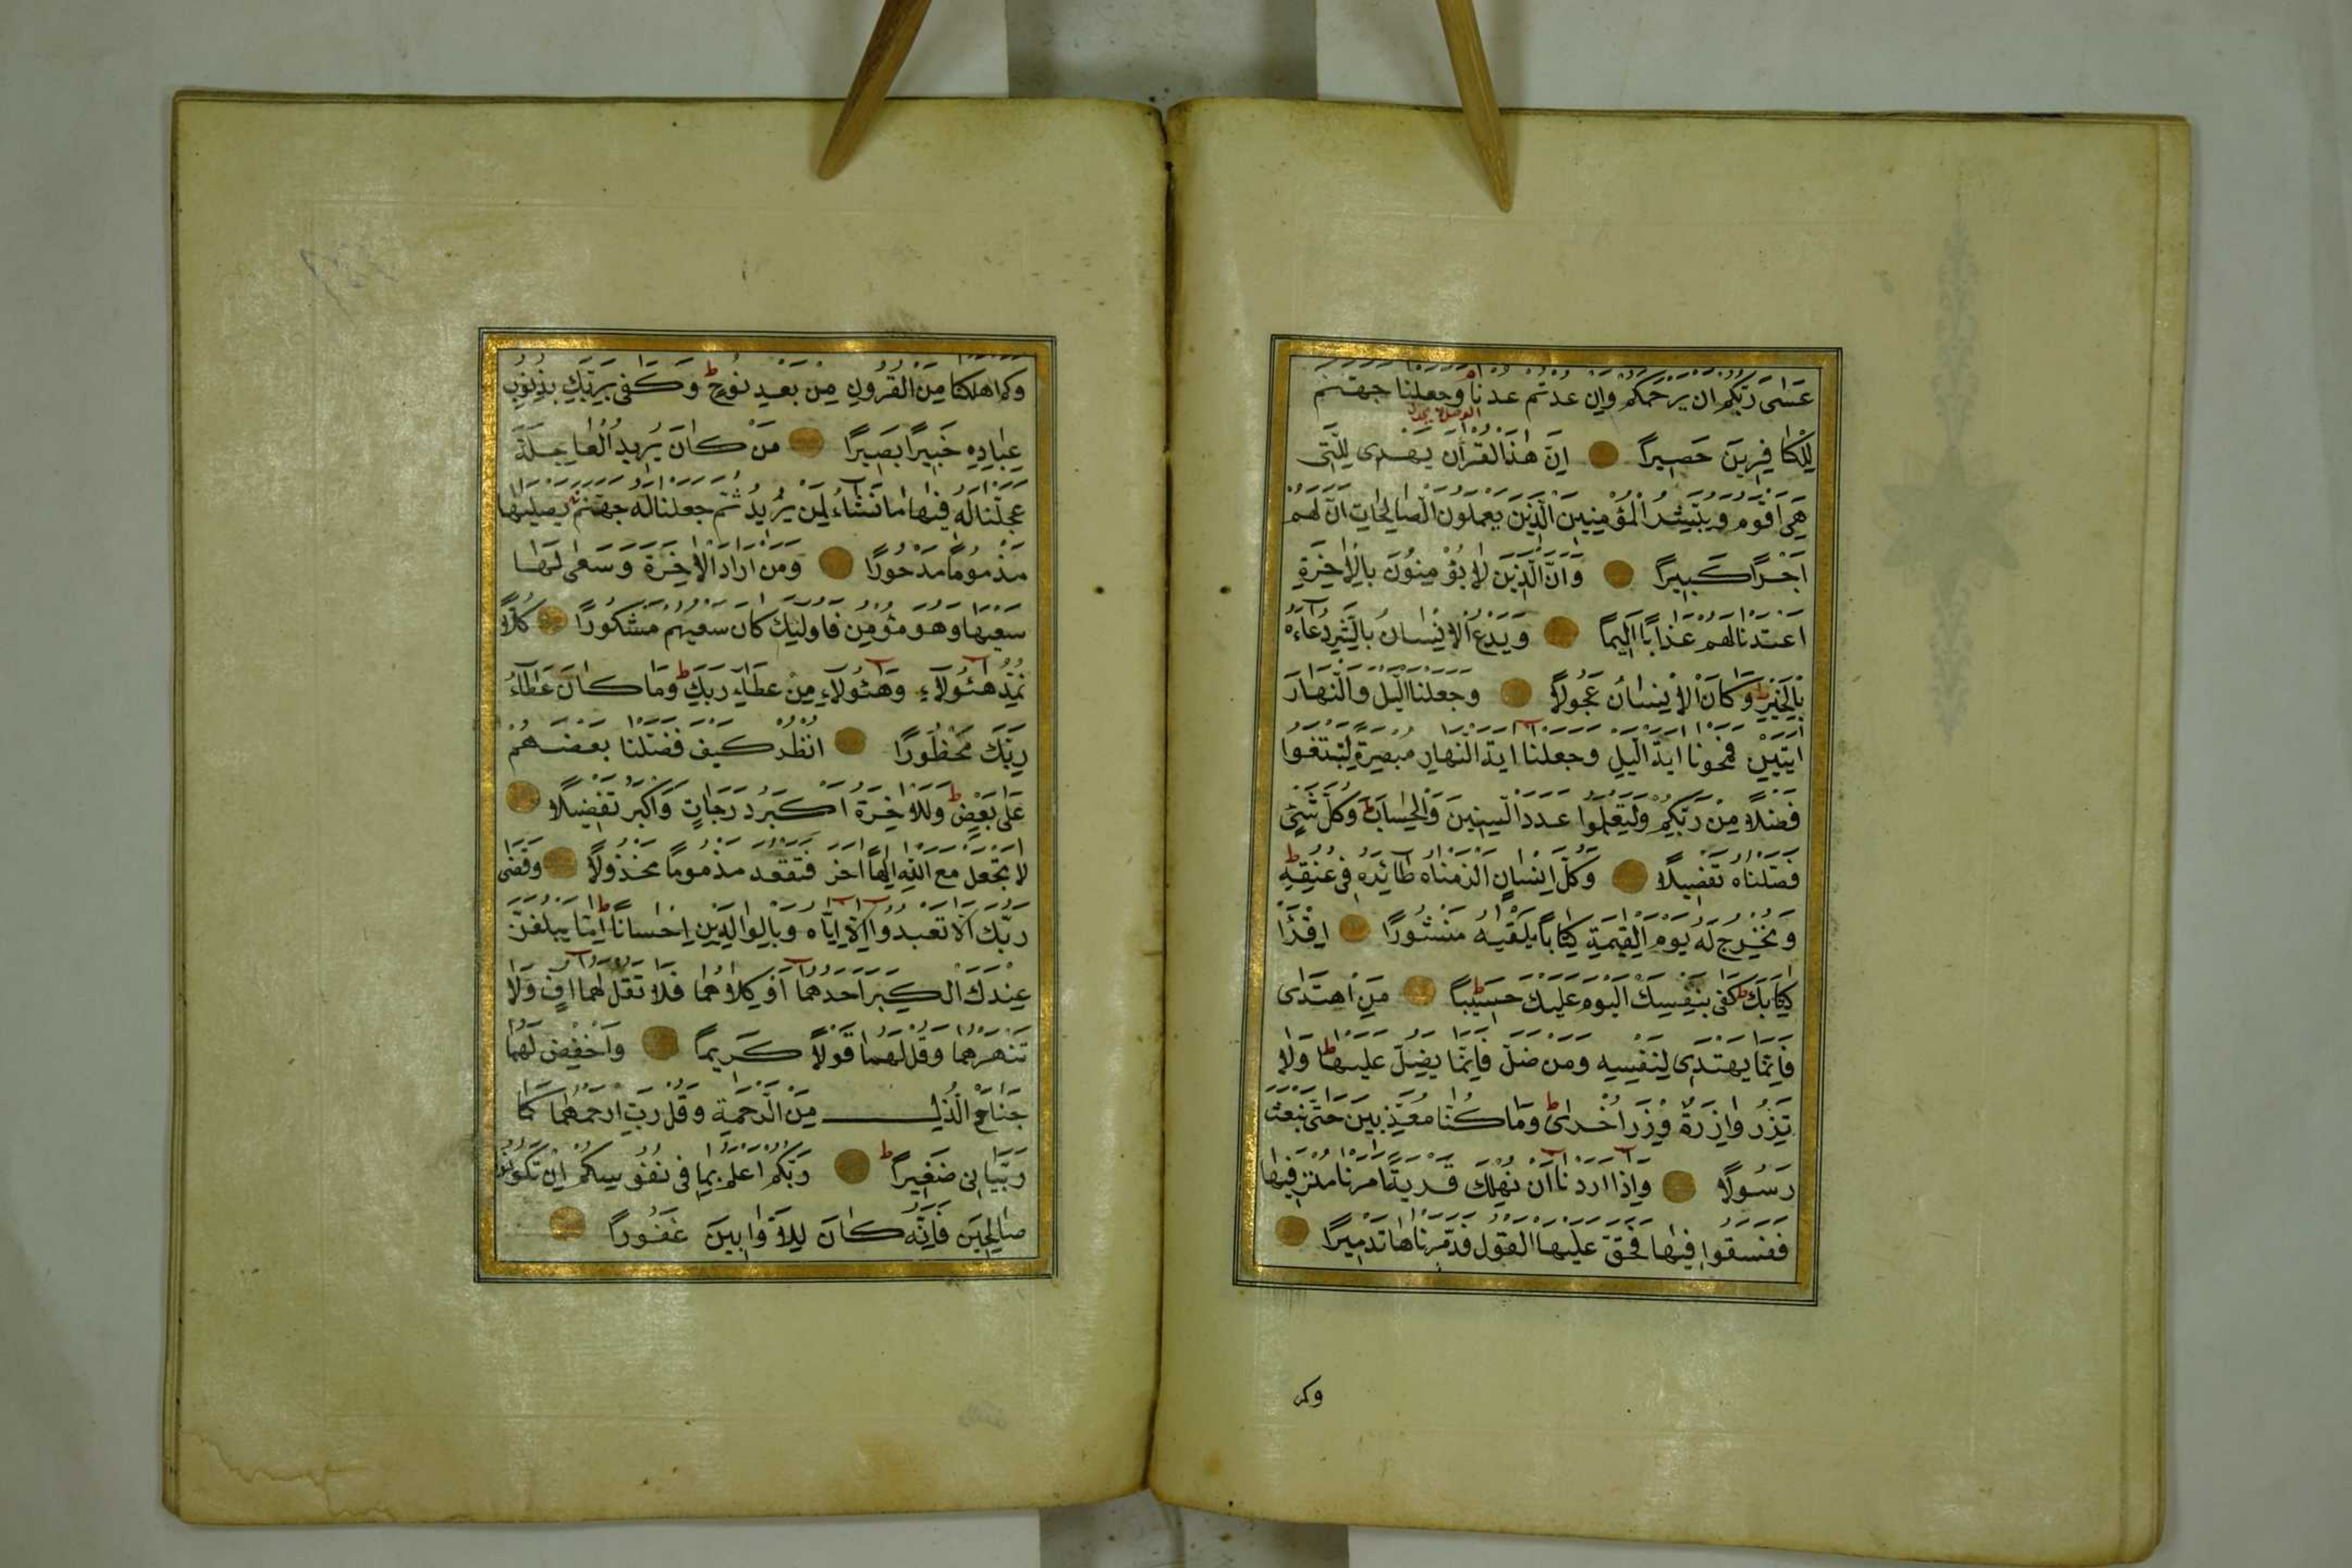 عَسٰى رَبُّكُمْ اَنْ يَرْحَمَكُمْ وَاِنْ عُدْتُمْ عُدْنَا وَجَعَلْنَا جَهَنَّمَ
لِلْكَافِرِينَ حَصِيرًا اِنَّ هٰذَا الْقُرْاٰنَ يَهْدِى لِلَّتِى
هِىَ اَقْوَمُ وَيُبَشِّرُ الْمُؤْمِنِينَ الَّذِينَ يَعْمَلُونَ الصَّالِحَاتِ اَنَّ لَهُمْ
اَجْرًا كَبِيرًا وَاَنَّ الَّذِينَ لَا يُؤْمِنُونَ بِالْاٰخِرَةِ
اَعْتَدْنَا لَهُمْ عَذَابًا اَلِيمًا وَيَدْعُ الْاِنْسَانُ بِالشَّرِّ دُعَاءَهُ
بِالْخَيْرِ ط وَكَانَ الْاِنْسَانُ عَجُولًا وَجَعَلْنَا الَّيْلَ وَالنَّهَارَ
اٰيَتَيْنِ فَمَحَوْنَا اٰيَةَ الَّيْلِ وَجَعَلْنَا اٰيَةَ النَّهَارِ مُبْصِرَةً لِتَبْتَغُوا
فَضْلًا مِنْ رَبِّكُمْ وَلِتَعْلَمُوا عَدَدَ السِّنِينَ وَالْحِسَابَ ط وَكُلَّ شَىْءٍ
فَصَّلْنَاهُ تَفْصِيلًا وَكُلَّ اِنْسَانٍ اَلْزَمْنَاهُ طَائِرَهُ فِى عُنُقِهِ ط
وَنُخْرِجُ لَهُ يَوْمَ الْقِيٰمَةِ كِتَابًا يَلْقٰيهُ مَنْشُورًا اِقْرَاْ
كِتَابَكَ ط كَفٰى بِنَفْسِكَ الْيَوْمَ عَلَيْكَ حَسِيبًا ط مَنِ اهْتَدٰى
فَاِنَّمَا يَهْتَدِى لِنَفْسِهِ وَمَنْ ضَلَّ فَاِنَّمَا يَضِلُّ عَلَيْهَا ط وَلَا
تَزِرُ وَازِرَةٌ وِزْرَ اُخْرٰى ط وَمَا كُنَّا مُعَذِّبِينَ حَتّٰى نَبْعَثَ
رَسُولًا وَاِذَا اَرَدْنَا اَنْ نُهْلِكَ قَرْيَةً اَمَرْنَا مُتْرَفِيهَا
فَفَسَقُوا فِيهَا فَحَقَّ عَلَيْهَا الْقَوْلُ فَدَمَّرْنَاهَا تَدْمِيرًا
وكم
وَكَمْ اَهْلَكْنَا مِنَ الْقُرُونِ مِنْ بَعْدِ نُوحٍ ط وَكَفٰى بِرَبِّكَ بِذُنُوبِ
عِبَادِهِ خَبِيرًا بَصِيرًا مَنْ كَانَ يُرِيدُ الْعَاجِلَةَ
عَجَّلْنَا لَهُ فِيهَا مَا نَشَاءُ لِمَنْ نُرِيدُ ثُمَّ جَعَلْنَا لَهُ جَهَنَّمَ يَصْلٰيهَا
مَذْمُومًا مَدْحُورًا وَمَنْ اَرَادَ الْاٰخِرَةَ وَسَعٰى لَهَا
سَعْيَهَا وَهُوَ مُؤْمِنٌ فَاُولٰئِكَ كَانَ سَعْيُهُمْ مَشْكُورًا كُلًّا
نُمِدُّ هٰؤُلَاءِ وَهٰؤُلَاءِ مِنْ عَطَاءِ رَبِّكَ ط وَمَا كَانَ عَطَاءُ
رَبِّكَ مَحْظُورًا اُنْظُرْ كَيْفَ فَضَّلْنَا بَعْضَهُمْ
عَلٰى بَعْضٍ ط وَلَلْاٰخِرَةُ اَكْبَرُ دَرَجَاتٍ وَاَكْبَرُ تَفْضِيلًا
لَا تَجْعَلْ مَعَ اللّٰهِ اِلٰهًا اٰخَرَ فَتَقْعُدَ مَذْمُومًا مَخْذُولًا وَقَضٰى
رَبُّكَ اَلَّا تَعْبُدُوا اِلَّا اِيَّاهُ وَبِالْوَالِدَيْنِ اِحْسَانًا ط اِمَّا يَبْلُغَنَّ
عِنْدَكَ الْكِبَرَ اَحَدُهُمَا اَوْ كِلَاهُمَا فَلَا تَقُلْ لَهُمَا اُفٍّ وَلَا
تَنْهَرْهُمَا وَقُلْ لَهُمَا قَوْلًا كَرِيمًا وَاخْفِضْ لَهُمَا
جَنَاحَ الذُّلِّ مِنَ الرَّحْمَةِ وَقُلْ رَبِّ ارْحَمْهُمَا كَمَا
رَبَّيَانِى صَغِيرًا ط رَبُّكُمْ اَعْلَمُ بِمَا فِى نُفُوسِكُمْ اِنْ تَكُونُوا
صَالِحِينَ فَاِنَّهُ كَانَ لِلْاَوَّابِينَ غَفُورًا